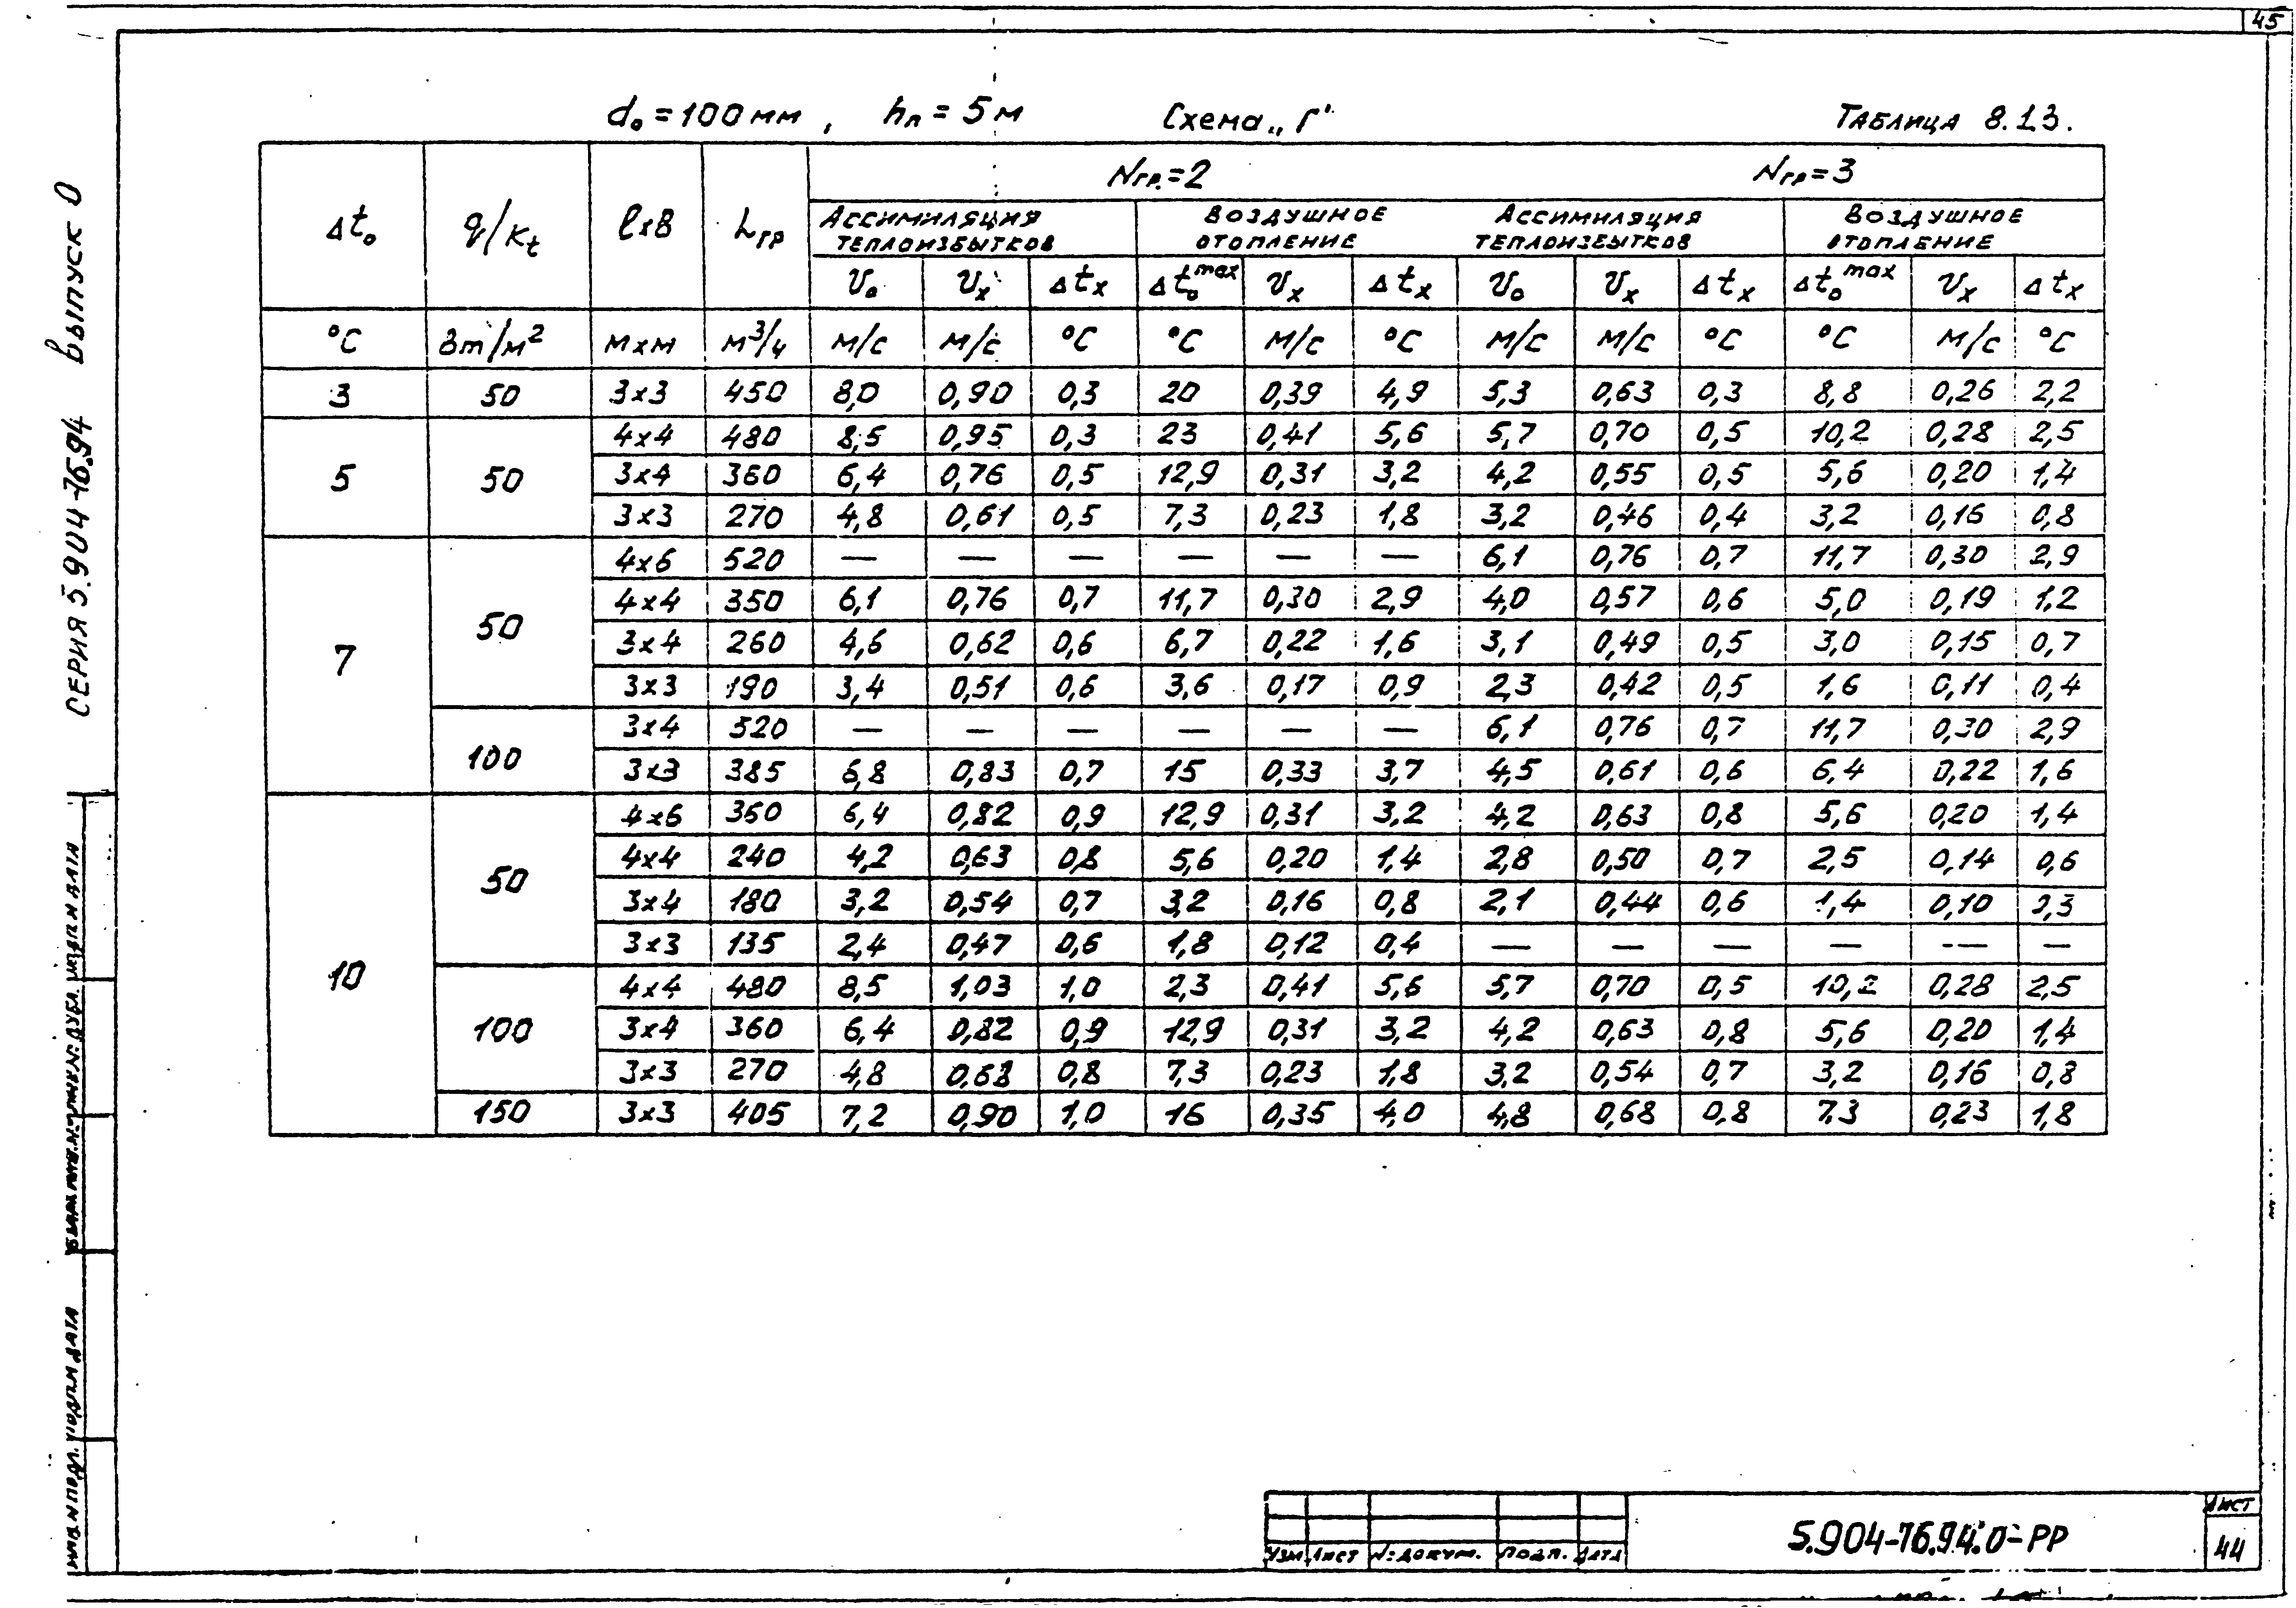 45
d₀ = 100 мм, hп = 5 м Схема „Г" Таблица 8.13.
Δt₀ q/Kt ℓxB Lгр Nгр.=2 Nгр=3
Ассимиляция теплоизбытков Воздушное отопление Ассимиляция теплоизбытков Воздушное отопление
V₀ Vx Δtx Δt₀max Vx Δtx V₀ Vx Δtx Δt₀max Vx Δtx
°C Вт/м² мxм м³/ч м/с м/с °C °C м/с °C м/с м/с °C °C м/с °C
3 50 3x3 450 8,0 0,90 0,3 20 0,39 4,9 5,3 0,63 0,3 8,8 0,26 2,2
5 50 4x4 480 8,5 0,95 0,3 23 0,41 5,6 5,7 0,70 0,5 10,2 0,28 2,5
3x4 360 6,4 0,76 0,5 12,9 0,31 3,2 4,2 0,55 0,5 5,6 0,20 1,4
3x3 270 4,8 0,61 0,5 7,3 0,23 1,8 3,2 0,46 0,4 3,2 0,16 0,8
7 50 4x6 520 — — — — — — 6,1 0,76 0,7 11,7 0,30 2,9
4x4 350 6,1 0,76 0,7 11,7 0,30 2,9 4,0 0,57 0,6 5,0 0,19 1,2
3x4 260 4,6 0,62 0,6 6,7 0,22 1,6 3,1 0,49 0,5 3,0 0,15 0,7
3x3 190 3,4 0,51 0,6 3,6 0,17 0,9 2,3 0,42 0,5 1,6 0,11 0,4
100 3x4 520 — — — — — — 6,1 0,76 0,7 11,7 0,30 2,9
3x3 385 6,8 0,83 0,7 15 0,33 3,7 4,5 0,61 0,6 6,4 0,22 1,6
10 50 4x6 360 6,4 0,82 0,9 12,9 0,31 3,2 4,2 0,63 0,8 5,6 0,20 1,4
4x4 240 4,2 0,63 0,8 5,6 0,20 1,4 2,8 0,50 0,7 2,5 0,14 0,6
3x4 180 3,2 0,54 0,7 3,2 0,16 0,8 2,1 0,44 0,6 1,4 0,10 0,3
3x3 135 2,4 0,47 0,6 1,8 0,12 0,4 — — — — — —
100 4x4 480 8,5 1,03 1,0 2,3 0,41 5,6 5,7 0,70 0,5 10,2 0,28 2,5
3x4 360 6,4 0,82 0,9 12,9 0,31 3,2 4,2 0,63 0,8 5,6 0,20 1,4
3x3 270 4,8 0,68 0,8 7,3 0,23 1,8 3,2 0,54 0,7 3,2 0,16 0,8
150 3x3 405 7,2 0,90 1,0 16 0,35 4,0 4,8 0,68 0,8 7,3 0,23 1,8
Серия 5.904-76.94 Выпуск 0
Инв.N подл. Подп. и дата Взам.инв.N Инв.N дубл. Подп. и дата
Изм Лист N: докум. Подп. Дата
5.904-76.94.0-РР
Лист
44